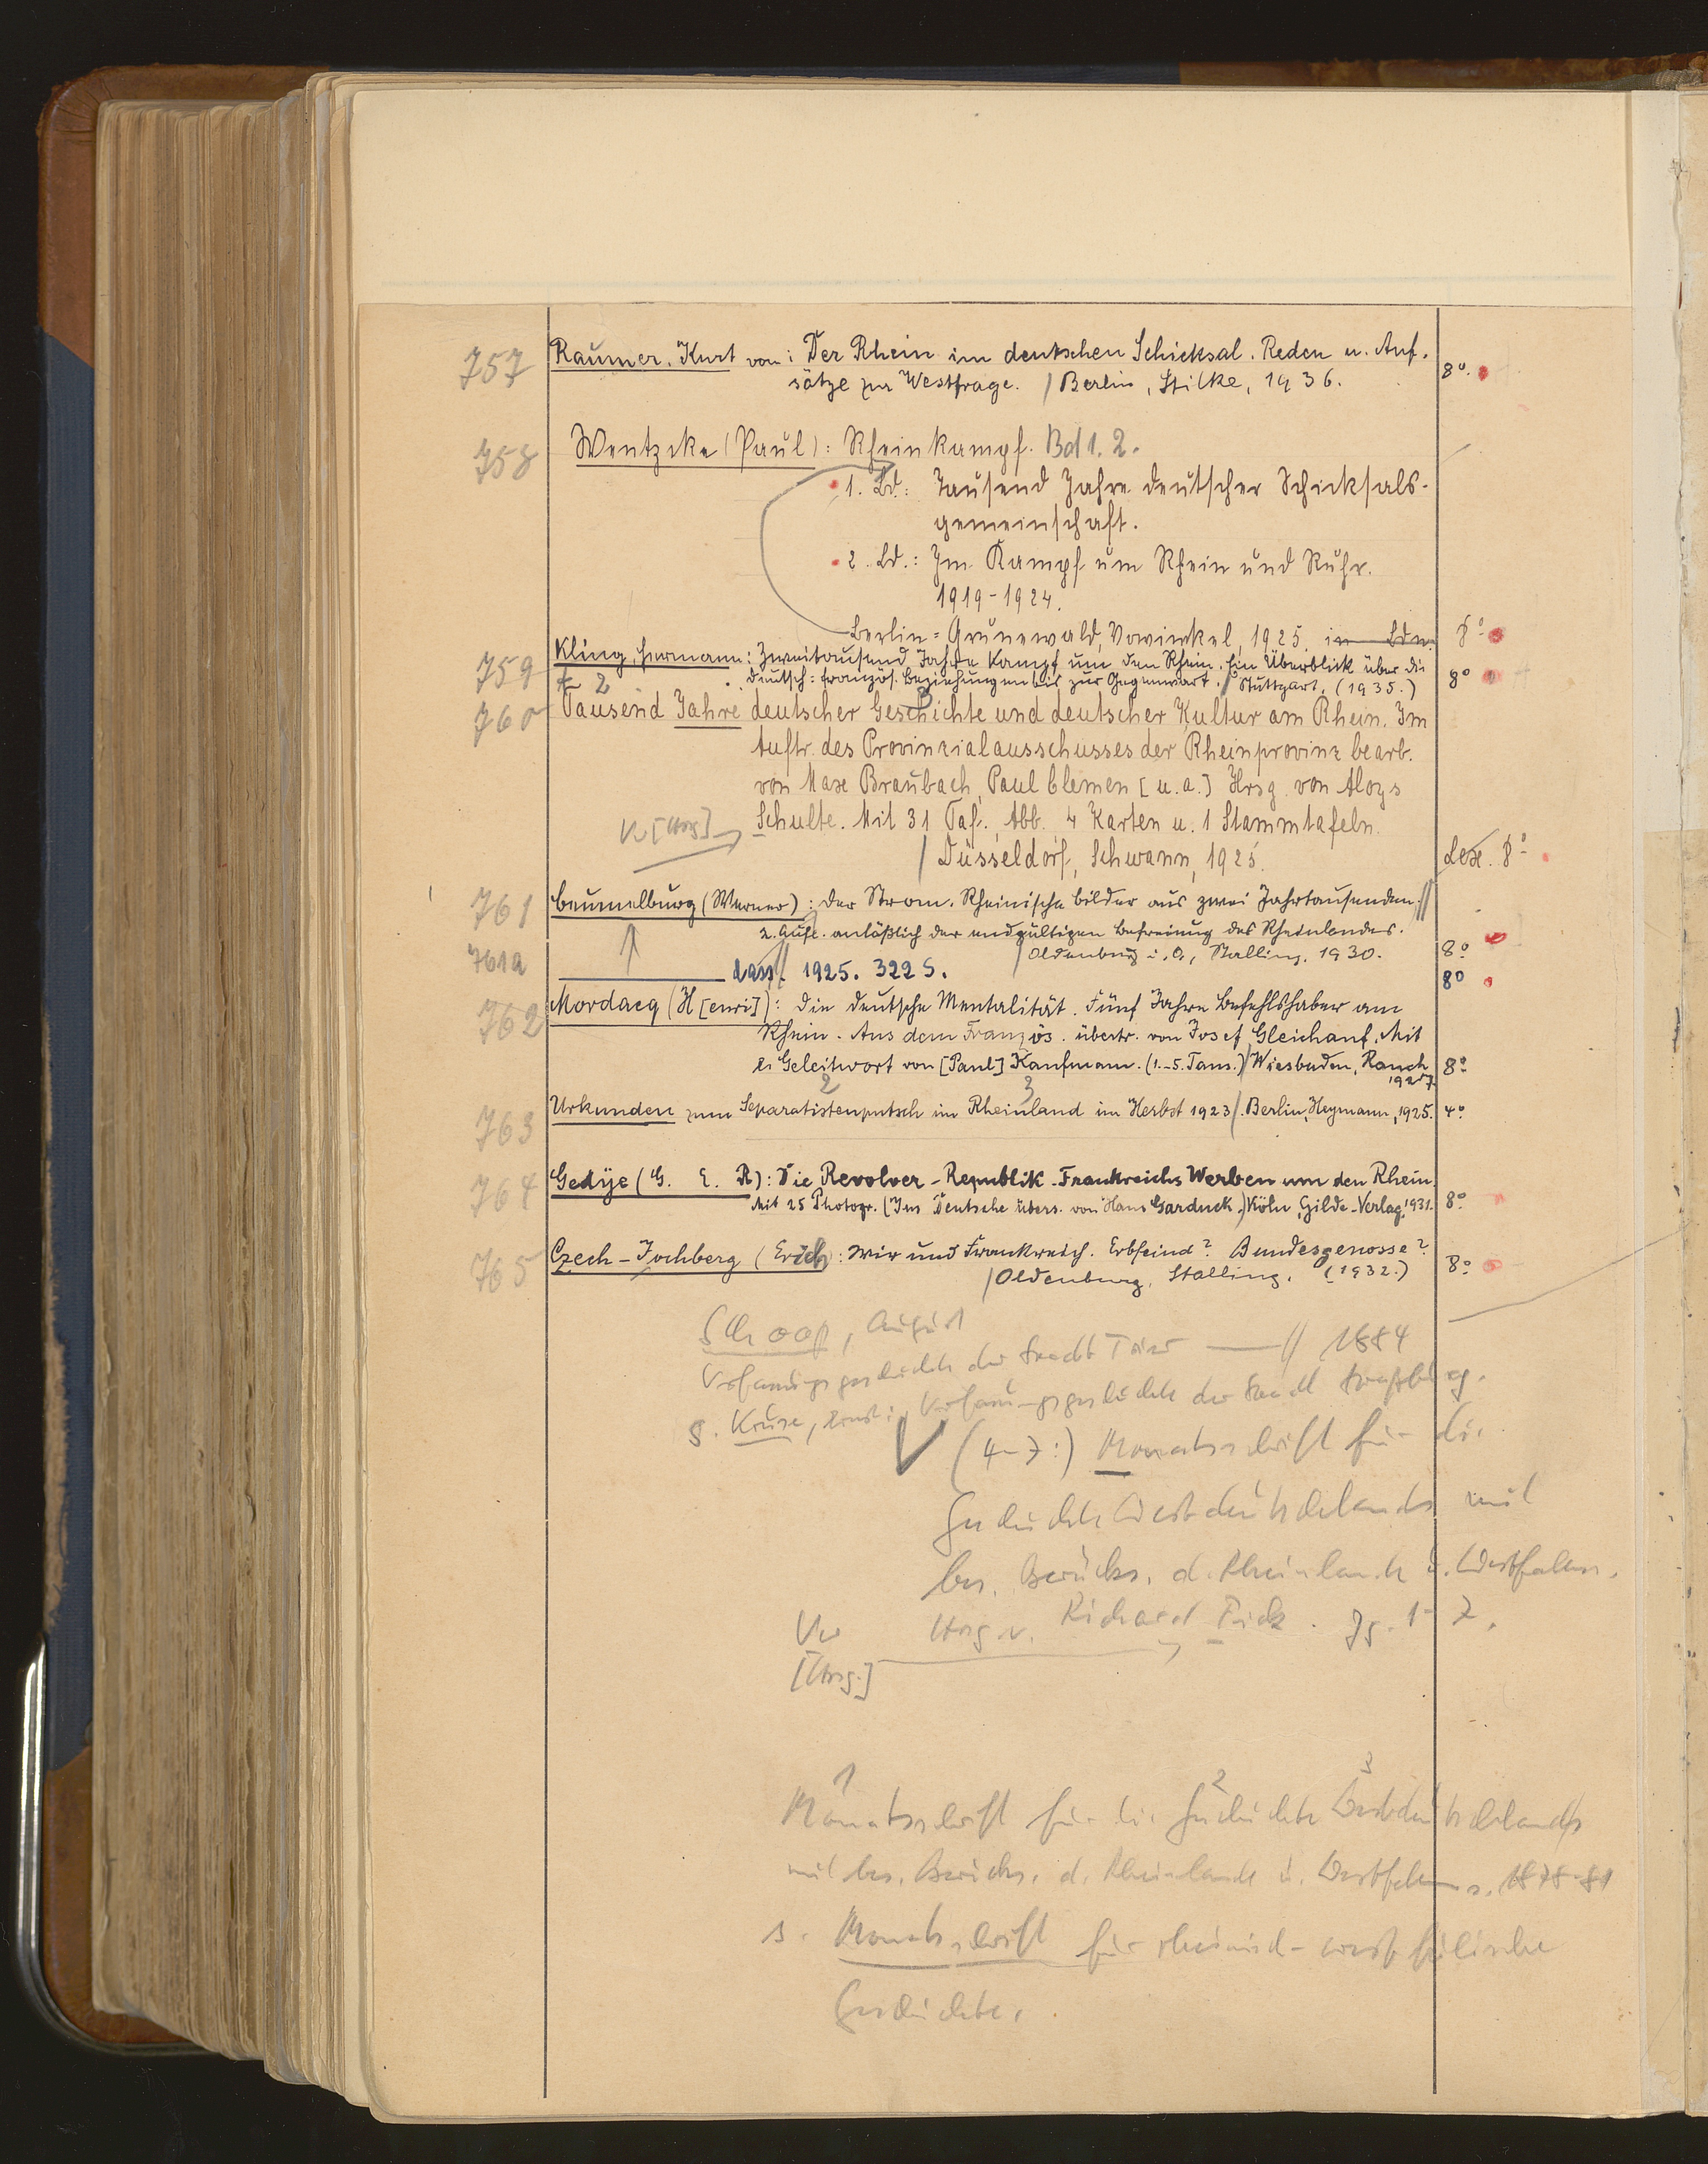 757 Raumer, Kurt von: Der Rhein im deutschen Schicksal. Reden u. Auf-
sätze zur Westfrage. / Berlin, Stilke, 1936. 8°.
758 Wentzcke (Paul): Rheinkampf. Bd 1. 2.
1. Bd.: Tausend Jahre deutscher Schicksals-
gemeinschaft.
2. Bd.: Im Kampf um Rhein und Ruhr.
1919-1924.
Berlin-Grunewald, Vowinckel, 1925. in Ldn. 8°
759 Kling, Hermann: Zweitausend Jahre Kampf um den Rhein. Ein Überblick über die
deutsch-französ. Beziehungen bis zur Gegenwart. / Stuttgart, (1935.) 8°
2 3
760 Tausend Jahre deutscher Geschichte und deutscher Kultur am Rhein. Im
Auftr. des Provinzialausschusses der Rheinprovinz bearb.
von Max Braubach, Paul Clemen [u.a.] Hrsg. von Aloys
Schulte. Mit 31 Taf., Abb., 4 Karten u. 1 Stammtafeln.
[Hrsg]
/ Düsseldorf, Schwann, 1925. Lex. 8°
761 Beumelburg (Werner): Der Strom. Rheinische Bilder aus zwei Jahrtausenden. //
2. Aufl. anläßlich der endgültigen Befreiung des Rheinlandes.
/ Oldenburg i. O., Stalling, 1930. 8°
761a dass. 1925. 322 S. 8°
762 Mordacq (H[enri]): Die deutsche Mentalität. Fünf Jahre Befehlshaber am
Rhein. Aus dem Französ. übertr. von Josef Gleichauf. Mit
e. Geleitwort von [Paul] Kaufmann. (1.-5. Taus.) / Wiesbaden, Rauch, 8°
1927
2 3
763 Urkunden zum Separatistenputsch im Rheinland im Herbst 1923 /. Berlin, Heymann, 1925. 4°
764 Gedye (G. E. R): Die Revolver-Republik. Frankreichs Werben um den Rhein.
Mit 25 Photogr. (Ins Deutsche übers. von Hans Garduck.) Köln, Gilde-Verlag, 1931. 8°
765 Czech-Jochberg (Erich): Wir und Frankreich. Erbfeind? Bundesgenosse?
/ Oldenburg, Stalling. (1932.) 8°
Schoop, August
Verfassungsgeschichte der Stadt Trier — // 1884
s. Kruse, Ernst: Verfassungsgeschichte der Stadt Straßburg.
(4-7:) Monatsschrift für die
Geschichte Westdeutschlands mit
bes. Berücks. d. Rheinlande u. Westfalen.
Vw Hrsg. v. Richard Pick. Jg. 1-7.
[Hrsg.]
1 2 3
Monatsschrift für die Geschichte Westdeutschlands
mit bes. Berücks. d. Rheinlande u. Westfalen. 1878-81
s. Monatsschrift für rheinisch-westfälische
Geschichte.